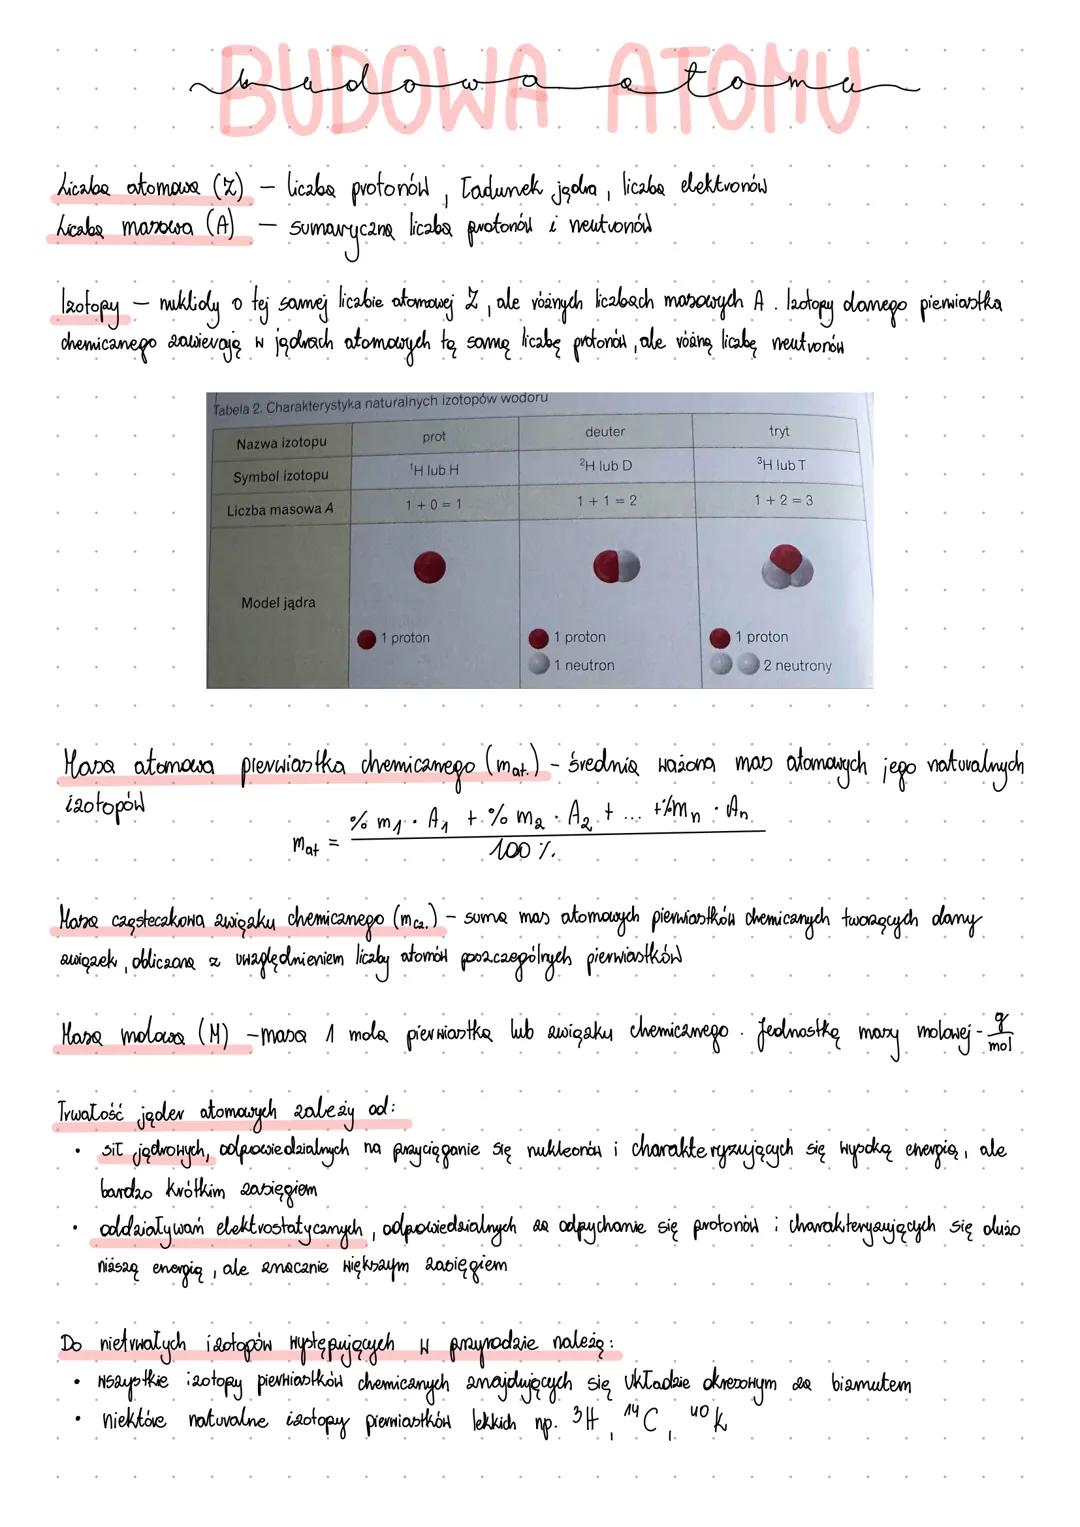 BUDOWA ATOMU
budowa atomu
Liczba atomowa (Z) – liczba protonów, ładunek jądra, liczba elektronów
Liczba masowa (A) – sumaryczna liczba protonów i neutronów
Izotopy – nuklidy o tej samej liczbie atomowej Z, ale różnych liczbach masowych A. Izotopy danego pierwiastka
chemicznego zawierają w jądrach atomowych tę samą liczbę protonów, ale różną liczbę neutronów
Tabela 2. Charakterystyka naturalnych izotopów wodoru
Nazwa izotopu prot deuter tryt
Symbol izotopu ¹H lub H ²H lub D ³H lub T
Liczba masowa A 1 + 0 = 1 1 + 1 = 2 1 + 2 = 3
Model jądra
1 proton 1 proton 1 proton
1 neutron 2 neutrony
Masa atomowa pierwiastka chemicznego (mat.) – średnia ważona mas atomowych jego naturalnych
izotopów
mat = % m₁ · A₁ + % m₂ · A₂ + ... + % mn · An
100 %
Masa cząsteczkowa związku chemicznego (mcz.) – suma mas atomowych pierwiastków chemicznych tworzących dany
związek, obliczona z uwzględnieniem liczby atomów poszczególnych pierwiastków
Masa molowa (M) – masa 1 mola pierwiastka lub związku chemicznego. Jednostka masy molowej - g/mol
Trwałość jąder atomowych zależy od:
• sił jądrowych, odpowiedzialnych na przyciąganie się nukleonów i charakteryzujących się wysoką energią, ale
bardzo krótkim zasięgiem
• oddziaływań elektrostatycznych, odpowiedzialnych za odpychanie się protonów i charakteryzujących się dużo
niższą energią, ale znacznie większym zasięgiem
Do nietrwałych izotopów występujących w przyrodzie należą:
• wszystkie izotopy pierwiastków chemicznych znajdujących się układzie okresowym za bizmutem
• niektóre naturalne izotopy pierwiastków lekkich np. ³H, ¹⁴C, ⁴⁰K